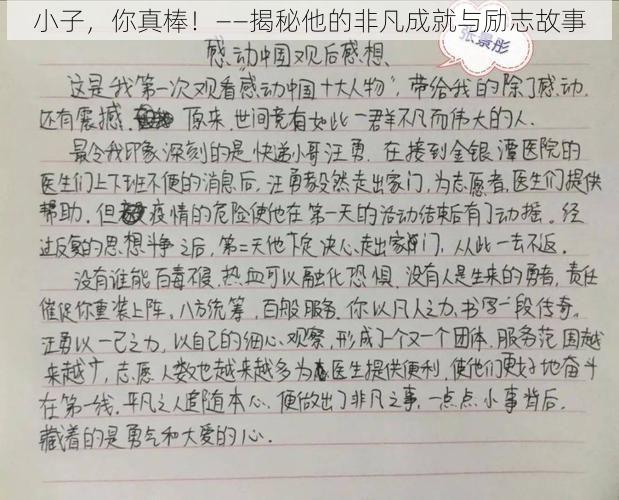 小子，你真棒！——揭秘他的非凡成就与励志故事
张景彤
感动中国观后感想
这是我第一次观看感动中国十大人物”，带给我的除了感动，
还有震撼。原来，世间竟有如此一群不凡而伟大的人。
最令我印象深刻的是快递小哥汪勇，在接到金银潭医院的
医生们上下班不便的消息后，汪勇毅然走出家门，为志愿者，医生们提供
帮助。但疫情的危险使他在第一天的活动结束后有了动摇。经
过反复的思想斗争之后，第二天他下定决心走出家门，从此一去不返。
没有谁能百毒不侵，热血可以融化恐惧，没有人是生来的勇者，责任
催促你重装上阵。八方统筹，百般服务，你以凡人之力，书写一段传奇。
汪勇以一己之力，以自己的细心观察，形成了一个又一个团体，服务范围越
来越广，志愿人数也越来越多为医生提供便利，使他们更好地奋斗
在第一线。平凡之人追随本心，便做出了非凡之事，一点点小事背后，
藏着的是勇气和大爱的心。